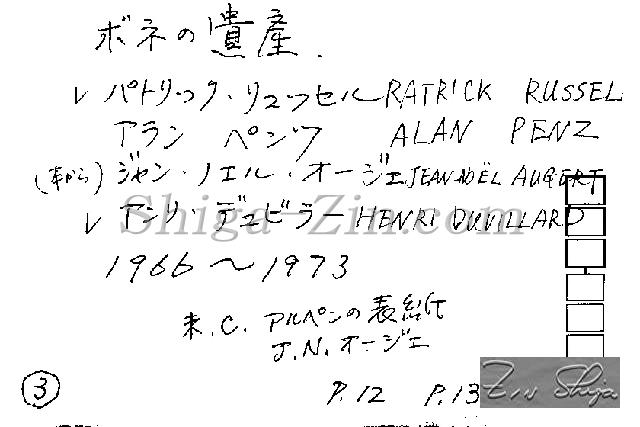 ボネの遺産.
レ パトリック・リュッセル RATRICK RUSSEL
アラン ペンツ ALAN PENZ
(本から) ジャン・ノエル・オージェ JEAN NOËL AUGERT
レ アンリ・デュビラー HENRI DUVILLARD
Shiga-Zin.com
1966〜1973
来.C. アルペンの表紙
J.N.オージェ
③ P.12 P.13
Zin Shiga